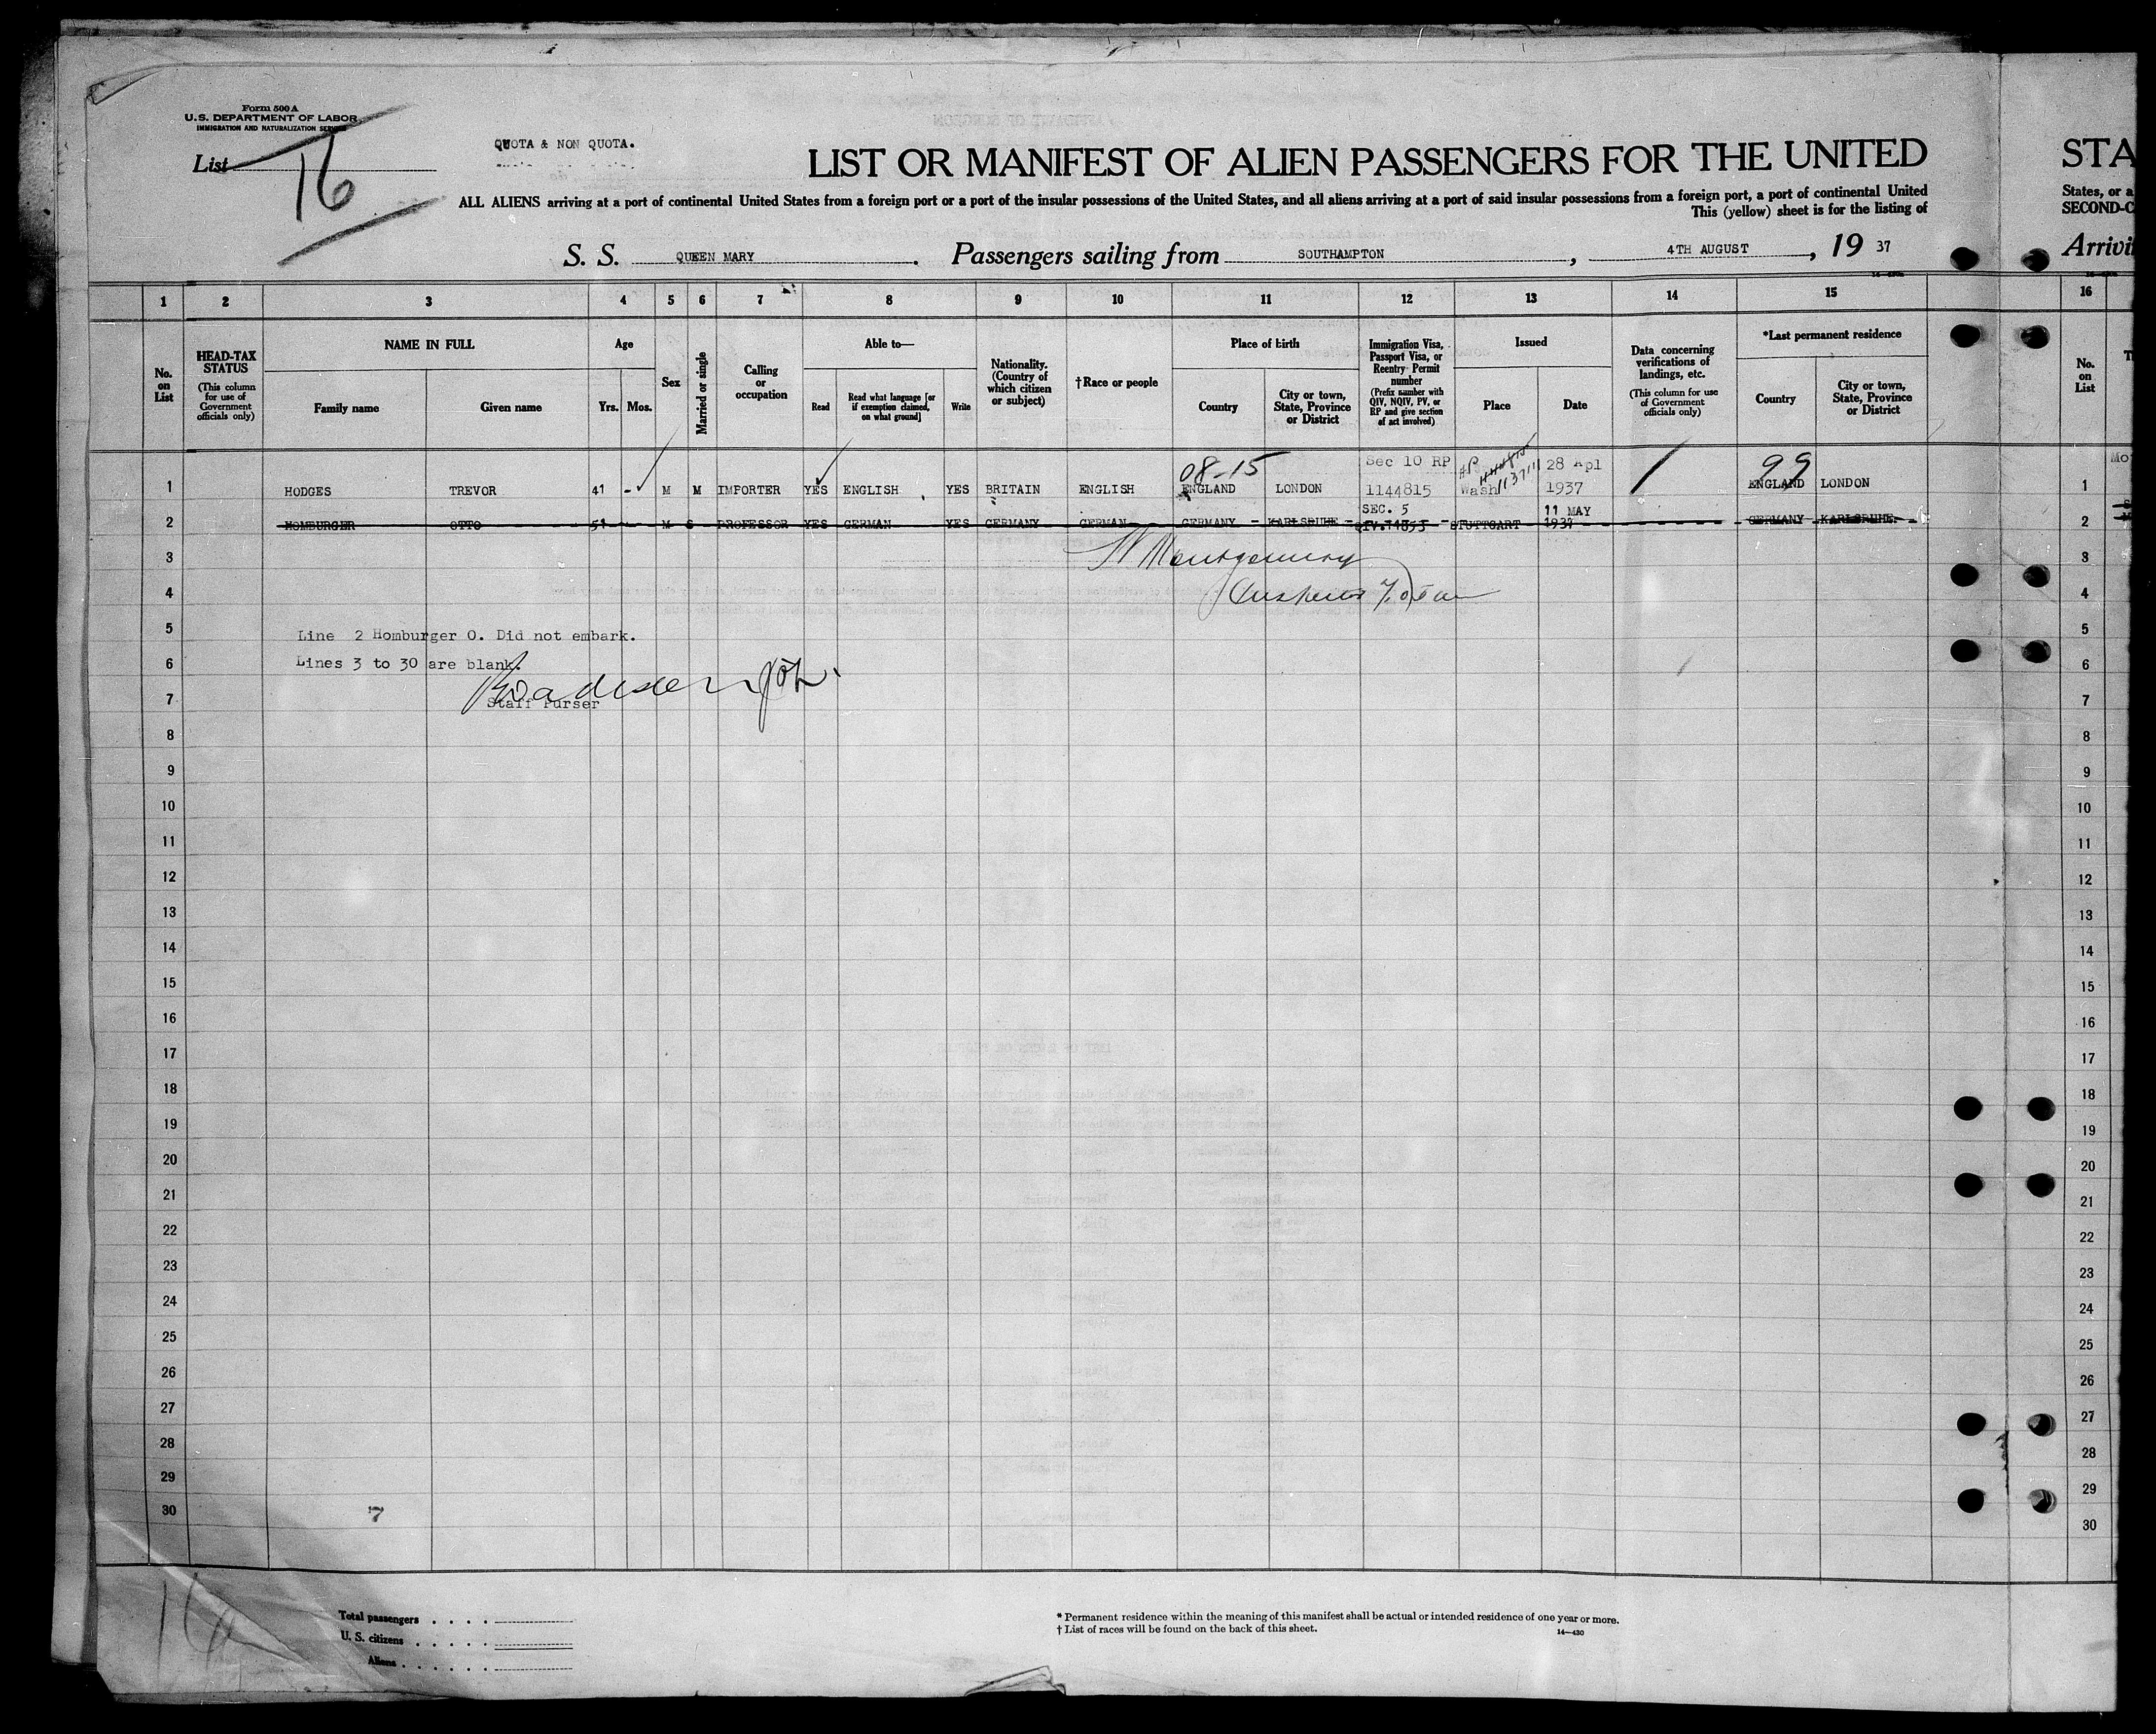 Form 500 A
U. S. DEPARTMENT OF LABOR
IMMIGRATION AND NATURALIZATION SERVICE
List 16
QUOTA & NON QUOTA.
LIST OR MANIFEST OF ALIEN PASSENGERS FOR THE UNITED
STA
ALL ALIENS arriving at a port of continental United States from a foreign port or a port of the insular possessions of the United States, and all aliens arriving at a port of said insular possessions from a foreign port, a port of continental United
States, or a
This (yellow) sheet is for the listing of
SECOND-C
S. S. QUEEN MARY . Passengers sailing from SOUTHAMPTON , 4TH AUGUST , 19 37
Arrivi
1 2 3 4 5 6 7 8 9 10 11 12 13 14 15 16
No. on List
HEAD-TAX STATUS
(This column for use of Government officials only)
NAME IN FULL
Family name
Given name
Age
Yrs. Mos.
Sex
Married or single
Calling or occupation
Able to—
Read
Read what language [or if exemption claimed, on what ground]
Write
Nationality. (Country of which citizen or subject)
†Race or people
Place of birth
Country
City or town, State, Province or District
Immigration Visa, Passport Visa, or Reentry Permit number
(Prefix number with QIV, NQIV, PV, or RP and give section of act involved)
Issued
Place
Date
Data concerning verifications of landings, etc.
(This column for use of Government officials only)
*Last permanent residence
Country
City or town, State, Province or District
No. on List
08-15 Sec 10 RP 28 Apl 99
1 HODGES TREVOR 41 - M M IMPORTER YES ENGLISH YES BRITAIN ENGLISH ENGLAND LONDON 1144815 Wash 1937 ENGLAND LONDON 1
SEC. 5 11 MAY
2 HOMBURGER OTTO 51 - M S PROFESSOR YES GERMAN YES GERMANY GERMAN GERMANY KARLSRUHE STUTTGART 1937 GERMANY KARLSRUHE 2
3 Montgomery 3
4 4
5 Line 2 Homburger O. Did not embark. 5
6 Lines 3 to 30 are blank. 6
7 Staff Purser 7
8 8
9 9
10 10
11 11
12 12
13 13
14 14
15 15
16 16
17 17
18 18
19 19
20 20
21 21
22 22
23 23
24 24
25 25
26 26
27 27
28 28
29 29
30 7 30
16
Total passengers . . . .
U. S. citizens . . . . .
Aliens . . . . . .
* Permanent residence within the meaning of this manifest shall be actual or intended residence of one year or more.
† List of races will be found on the back of this sheet.
14—430